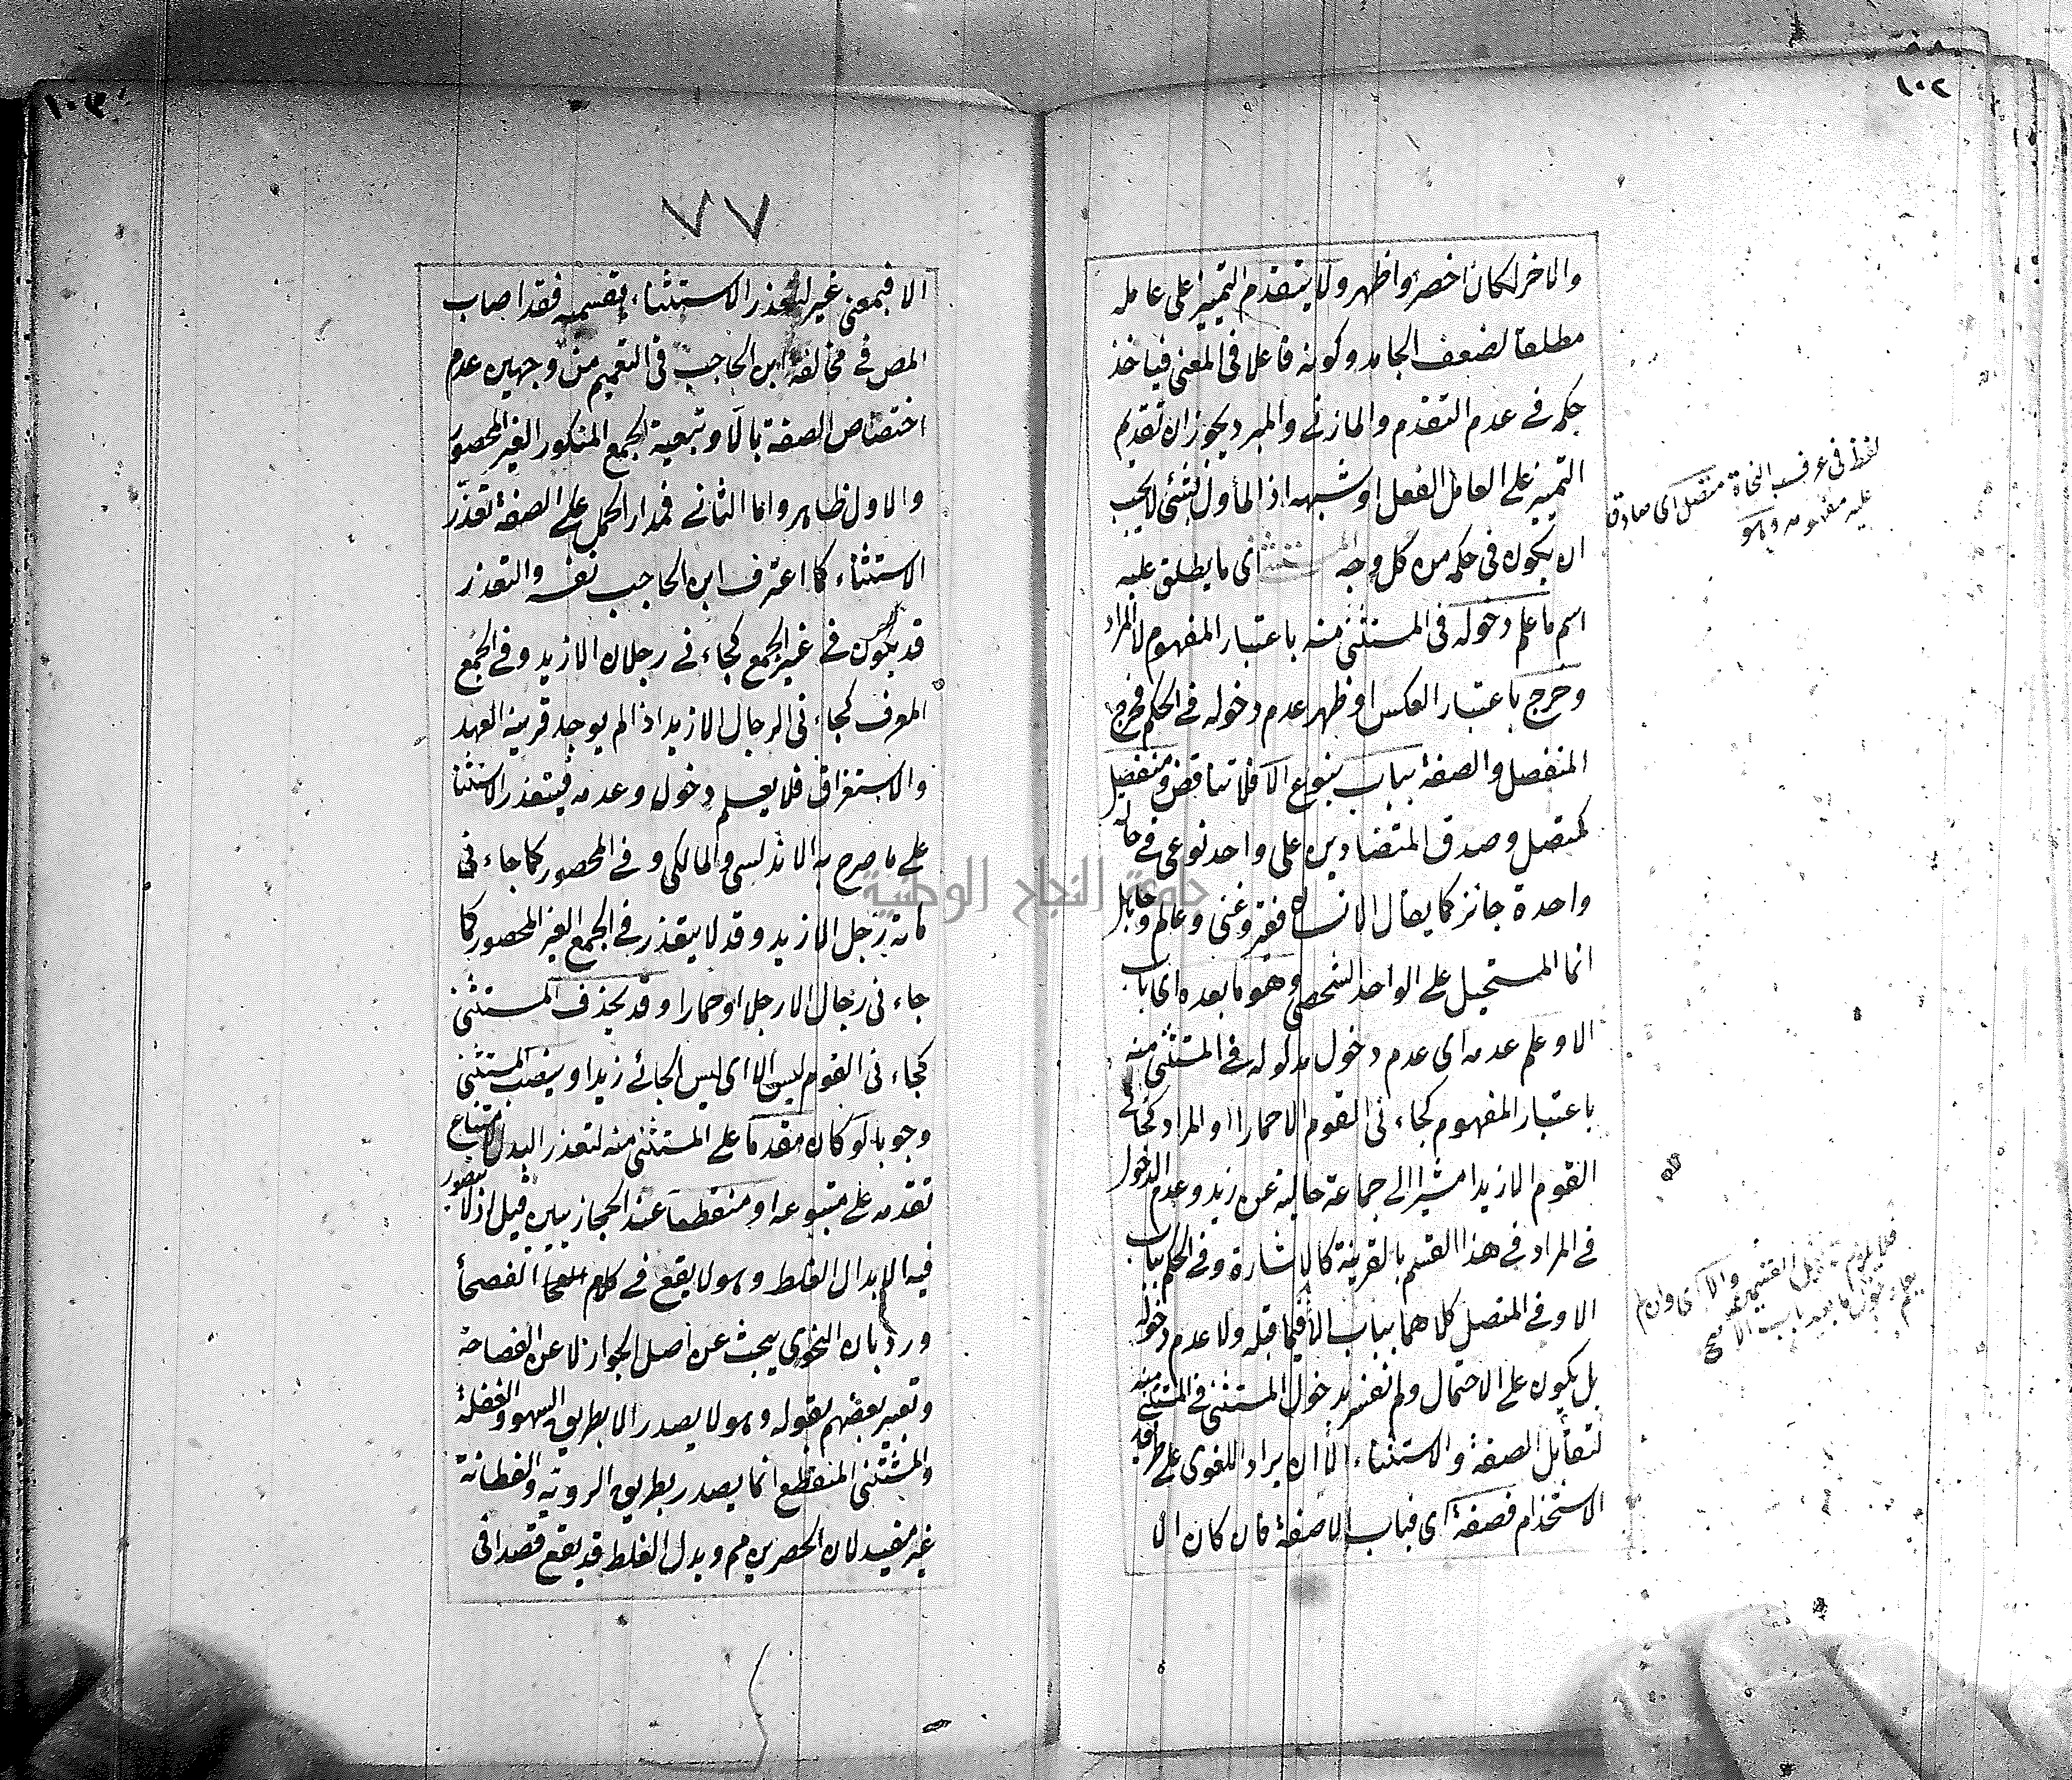 ١٠٢
والاخر لكان اخصر واظهر ولا يتقدم التمييز على عامله
مطلقا لضعف الجامد وكونه فاعلا فى المعنى فياخذ
حكمه فى عدم التقدم والمازنى والمبرد يجوزان تقديم
التمييز على العامل الفعل او شبهه اذ المأول بشئ لا يجب
ان يكون فى حكمه من كل وجه المستثنى اى ما يطلق عليه
اسم ما علم دخوله فى المستثنى منه باعتبار المفهوم لا المراد
وخرج باعتبار العكس او ظهر عدم دخوله فى الحكم فخرج
المنفصل والصفة بباب بنوع الا فلا تناقض ومنفصل
كمتصل وصدق المتضادين على واحد نوعى فى حالة
واحدة جائز كما يقال الانسان فقير وغنى وعالم وجاهل
انما المستحيل على الواحد الشخصى وهو ما بعده اى باب
الا وعلم عدمه اى عدم دخول مدلوله فى المستثنى منه
باعتبار المفهوم كجاءنى القوم الا حمارا او المراد كجاءنى
القوم الا زيدا مشيرا الى جماعة خالية عن زيد وعدم الدخول
فى المراد فى هذا القسم بالقرينة كالاشارة وفى الحكم بباب
الا وفى المتصل كلاهما بباب الا فيما قبله ولا عدم دخوله
بل يكون على الاحتمال ولم نفسر بدخول المستثنى فى المستثنى منه
لتقابل الصفة والاستثناء الا ان يراد اللغوى على طريقة
الاستخدام فصفة اى فباب الا صفة فان كان الا
لفظ فى عرف النحاة متصل اى صادق
عليه مفهومه وهو
١٠٣
٧٧
الا فبمعنى غير لتعذر الاستثناء بقسميه فقد اصاب
المص فى مخالفة ابن الحاجب فى التعميم من وجهين عدم
اختصاص الصفة بالا وتبعية الجمع المنكور الغير المحصور
والاول ظاهر واما الثانى فمدار الحمل على الصفة تعذر
الاستثناء كما اعترف ابن الحاجب نفسه والتعذر
قد يكون فى غير الجمع كجاءنى رجلان الا زيد وفى الجمع
المعرف كجاءنى الرجال الا زيد اذا لم يوجد قرينة العهد
والاستغراق فلا يعلم دخول وعدمه فيتعذر الاستثنا
على ما صرح به الاندلسى والمالكى وفى المحصور كما جاءنى
مائة رجل الا زيد وقد لا يتعذر فى الجمع الغير المحصور كما
جاءنى رجال الا رجلا او حمارا وقد يحذف المستثنى
كجاءنى القوم ليس الا اى ليس الجائى زيدا وينصب المستثنى
وجوبا لو كان مقدما على المستثنى منه لتعذر البدل لامتناع
تقدمه على متبوعه او منقطعا عند الحجازيين قيل اذ لا يتصور
فيه الا بدال الغلط وهو لا يقع فى كلام الفصحأ
ورد بان النحوى يبحث عن اصل الجواز لا عن الفصاحة
وتعبير بعضهم بقوله وهو لا يصدر الا بطريق السهو والغفلة
والمستثنى المنقطع انما يصدر بطريق الروية والفطانة
غير مفيد لان الحصرين مم وبدل الغلط قد يقع قصدا فى
جامعة النجاح الوطنية